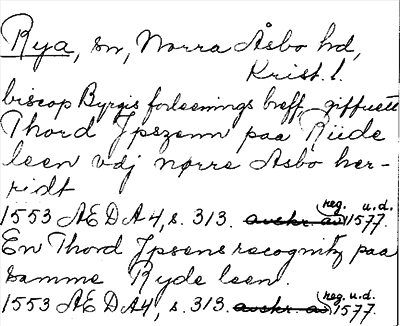 Rya, sn, Norra Åsbo hd,
Krist. l.
biscop Byrgis forleenings breff giffuett
Thord Ipszenn paa Riide
leen vdj nørre Asbo her-
ridt
1553 AEDA4, s. 313. avskr. av (reg. u.d. 1577.
En Thord Ipsens recognitz paa
samme Ryde leen.
1553 AEDA4, s. 313. avskr. av (reg. u.d. 1577.